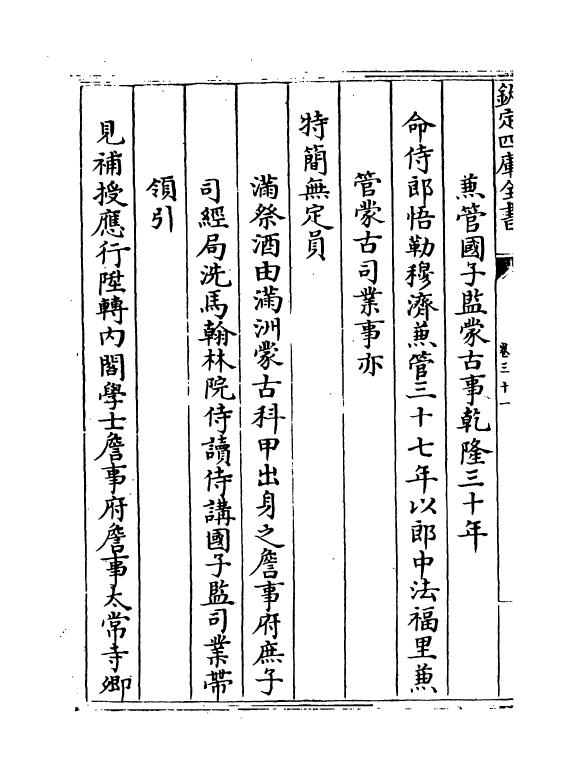 欽定四庫全書
卷三十一
兼管國子監蒙古事乾隆三十年
命侍郎悟勒穆濟兼管三十七年以郎中法福里兼
管蒙古司業事亦
特簡無定員
滿祭酒由滿洲蒙古科甲出身之詹事府庶子
司經局洗馬翰林院侍讀侍講國子監司業帶
領引
見補授應行陞轉內閣學士詹事府詹事太常寺卿